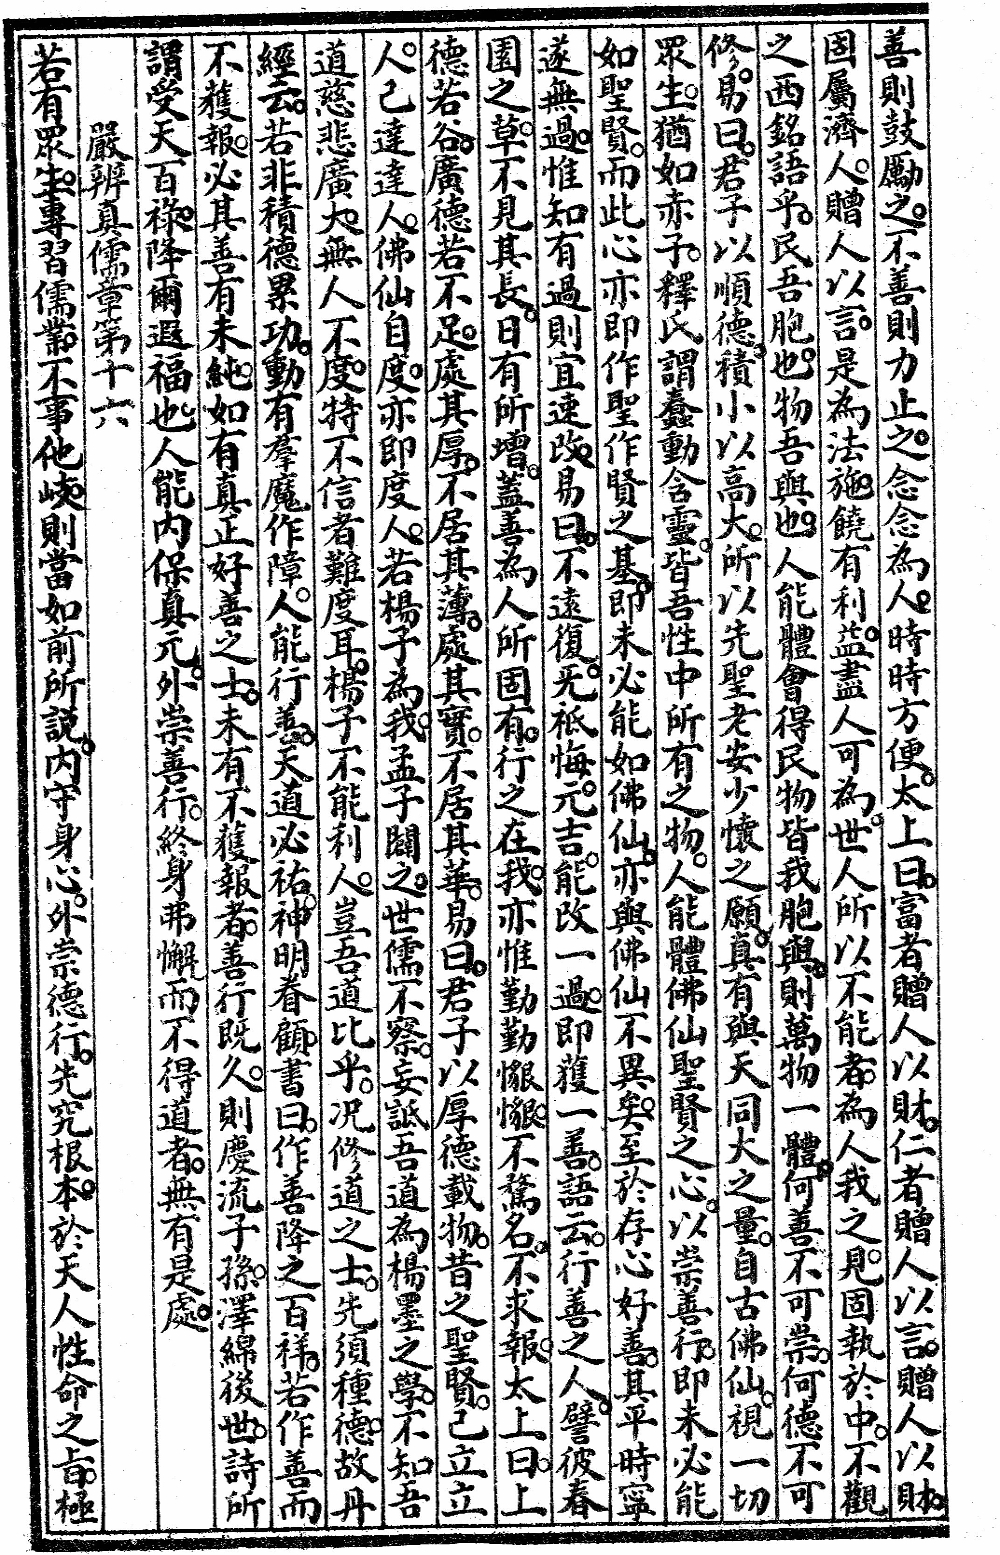 善則鼓勵之。不善則力止之。念念為人。時時方便。太上曰。富者贈人以財。仁者贈人以言。贈人以財。
固屬濟人。贈人以言。是為法施。饒有利益。盡人可為。世人所以不能者。為人我之見。固執於中。不觀
之西銘語乎。民吾胞也。物吾與也。人能體會得民物皆我胞與。則萬物一體。何善不可崇。何德不可
修。易曰。君子以順德。積小以高大。所以先聖老安少懷之願。真有與天同大之量。自古佛仙。視一切
眾生。猶如赤子。釋氏謂蠢動含靈。皆吾性中所有之物。人能體佛仙聖賢之心。以崇善行。即未必能
如聖賢。而此心亦即作聖作賢之基。即未必能如佛仙。亦與佛仙不異矣。至於存心好善。其平時寧
遂無過。惟知有過則宜速改。易曰。不遠復。旡祗悔。元吉。能改一過。即獲一善。語云。行善之人。譬彼春
園之草。不見其長。日有所增。蓋善為人所固有。行之在我。亦惟勤勤懇懇。不騖名。不求報。太上曰。上
德若谷。廣德若不足。處其厚。不居其薄。處其實。不居其華。易曰。君子以厚德載物。昔之聖賢。己立立
人。己達達人。佛仙自度。亦即度人。若楊子為我。孟子闢之。世儒不察。妄詆吾道為楊墨之學。不知吾
道慈悲廣大。無人不度。特不信者難度耳。楊子不能利人。豈吾道比乎。況修道之士。先須種德。故丹
經云。若非積德累功。動有羣魔作障。人能行善。天道必祐。神明眷顧。書曰。作善降之百祥。若作善而
不獲報。必其善有未純。如有真正好善之士。未有不獲報者。善行既久。則慶流子孫。澤綿後世。詩所
謂受天百祿。降爾遐福也。人能內保真元。外崇善行。終身弗懈。而不得道者。無有是處。
嚴辨真儒章第十六
若有眾生。專習儒業。不事他岐。則當如前所説。內守身心。外崇德行。先究根本。於天人性命之旨。極